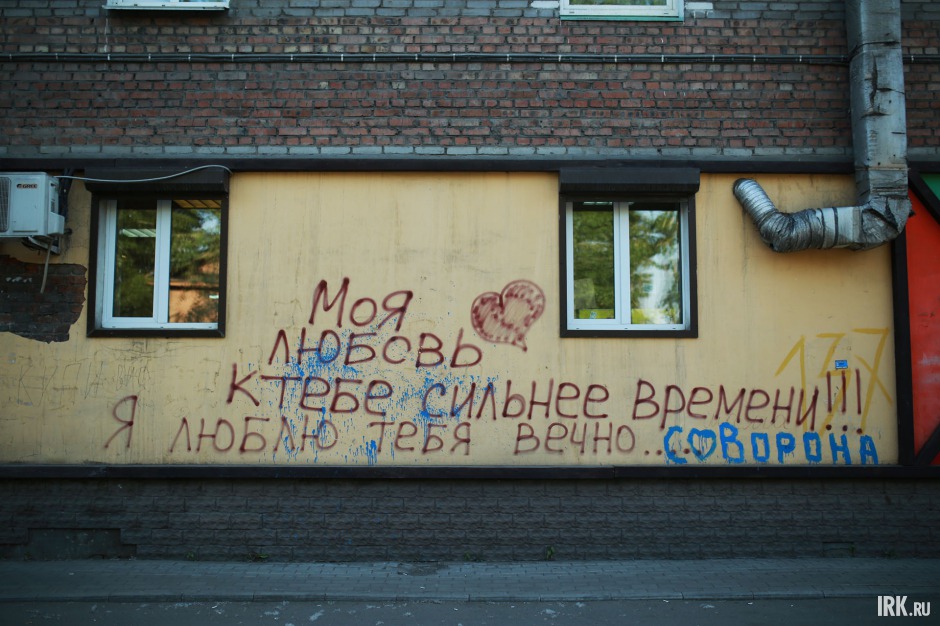 Моя
любовь
к тебе сильнее времени!!!
Я люблю тебя вечно......
СОВОРОНА
GREE
IRK.RU